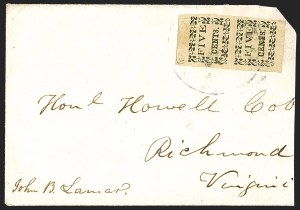 FIVE CENTS. FIVE CENTS.
Honl Howell Cob
Richmond
Virgini
John B. Lamar